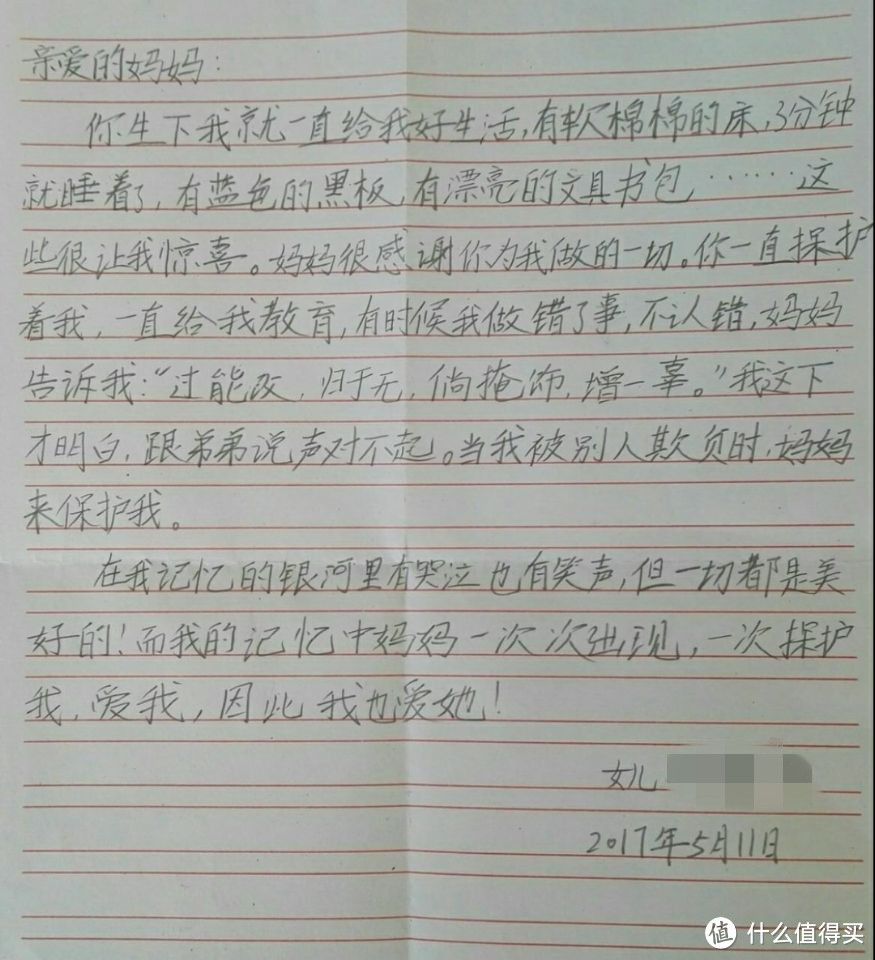 亲爱的妈妈:
你生下我就一直给我好生活,有软棉棉的床,3分钟
就睡着了,有蓝色的黑板,有漂亮的文具书包……这
些很让我惊喜。妈妈很感谢你为我做的一切。你一直探护
着我,一直给我教育,有时候我做错了事,不认错,妈妈
告诉我:“过能改,归于无,倘掩饰,增一辜。”我这下
才明白,跟弟弟说声对不起。当我被别人欺负时,妈妈
来保护我。
在我记忆的银河里有哭泣也有笑声,但一切都是美
好的!而我的记忆中妈妈一次次出现,一次探护
我,爱我,因此我也爱她!
女儿
2017年5月11日
值 什么值得买